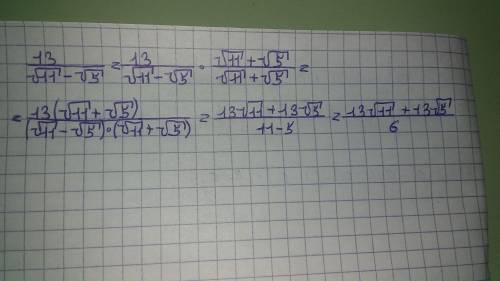 13/(√11-√5) = 13/(√11-√5) · (√11+√5)/(√11+√5) =
= 13(√11+√5)/((√11-√5)·(√11+√5)) = (13√11+13√5)/(11-5) = (13√11+13√5)/6